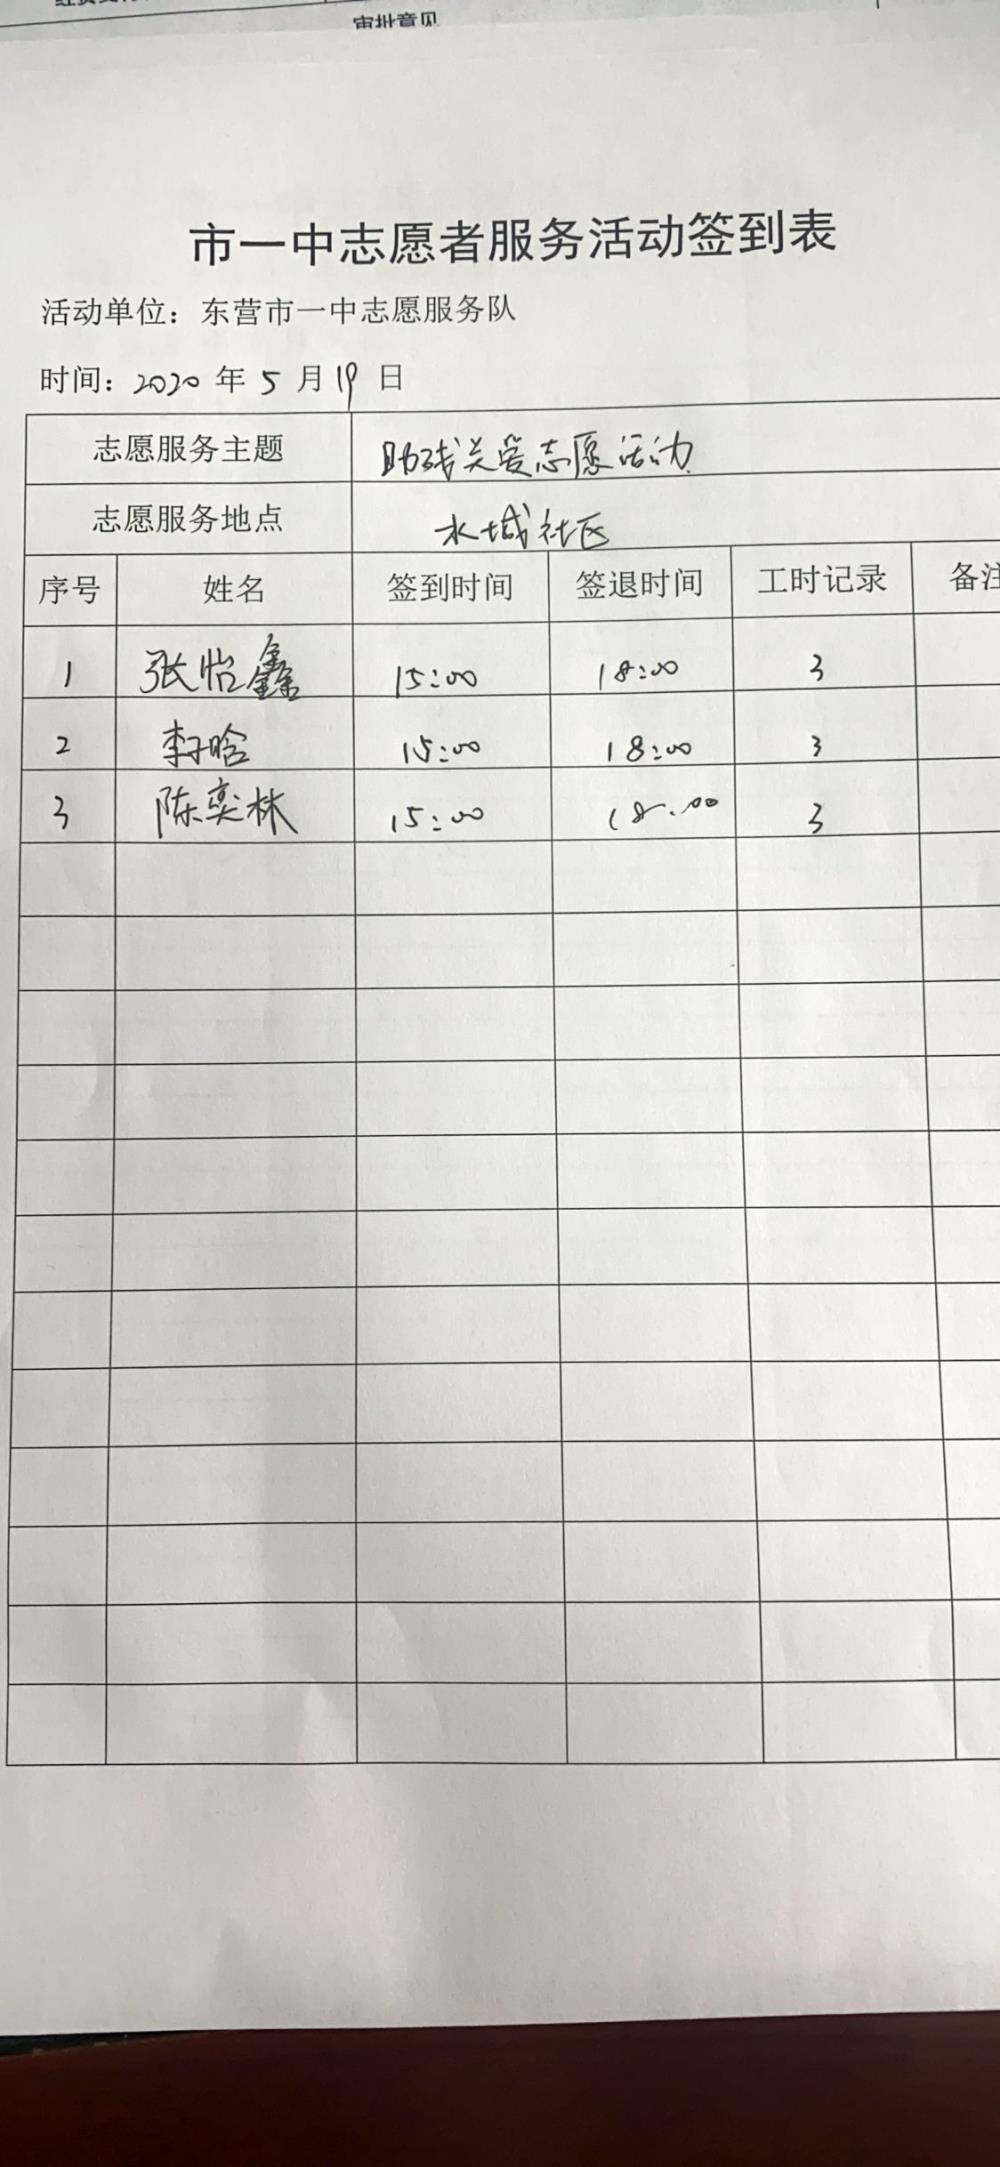 审批意见
市一中志愿者服务活动签到表
活动单位：东营市一中志愿服务队
时间：2020 年 5 月 19 日
志愿服务主题 助残关爱志愿活动
志愿服务地点 水城社区
序号 姓名 签到时间 签退时间 工时记录 备注
1 张怡鑫 15:00 18:00 3
2 李子晗 15:00 18:00 3
3 陈奕林 15:00 18:00 3